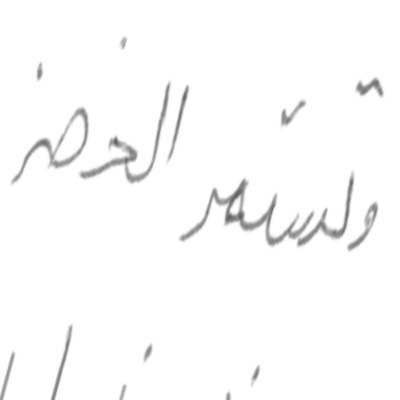 وتستمر الخضر